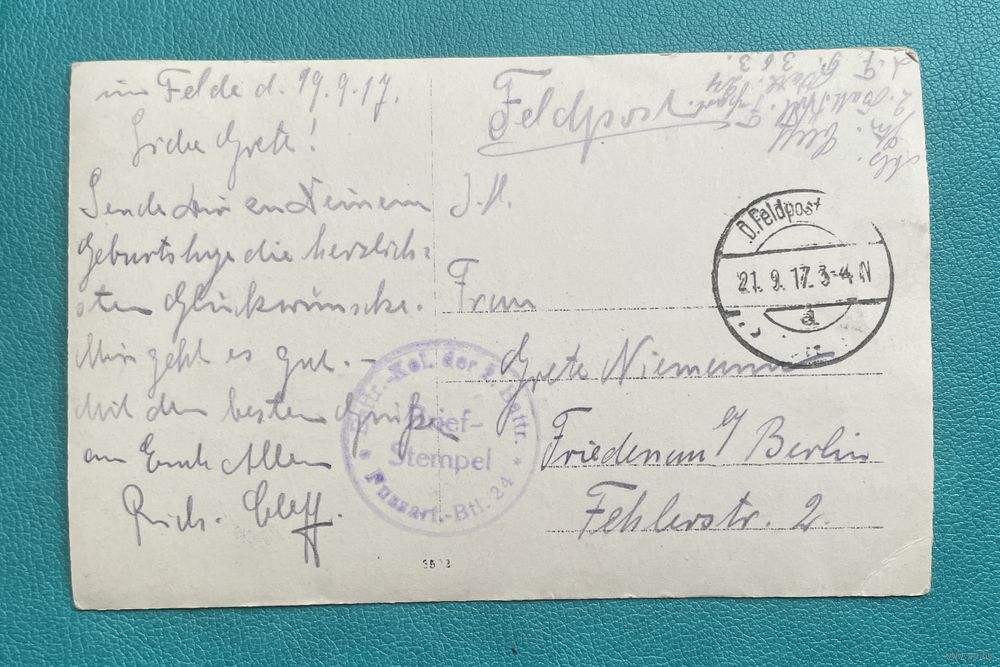 im Felde d. 19.9.17.
Liebe Grete!
Sende Dir zu Deinem
Geburtstage die herzlich-
sten Glückwünsche.
Mir geht es gut. –
Mit den besten Grüßen
an Euch Allen
Rich. Cleff.
Feldpost
Abs.
Cleff
2.
D. Feldpost
21. 9. 17. 3-4 N
a
Frau
Grete Niemann
Friedenau b/ Berlin
Fehlerstr. 2.
Kol. der Battr.
Brief-
Stempel
Fussart.-Btl. 24